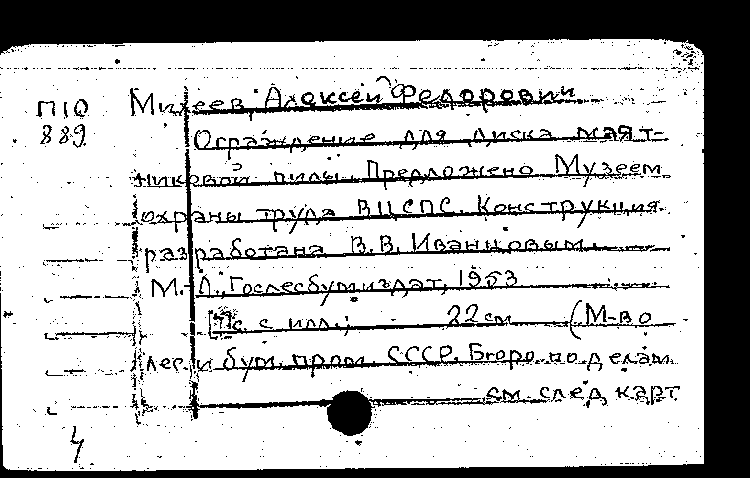 П10 Михеев, Алексей Федорович
889 Ограждение для диска маят-
никовой пилы. Предложено Музеем
охраны труда ВЦСПС. Конструкция
разработана В.В. Иванцовым.
М.-Л., Гослесбумиздат, 1953
с. с илл.; 22 см (М-во
лес. и бум. пром. СССР. Бюро по делам
см. след. карт
4